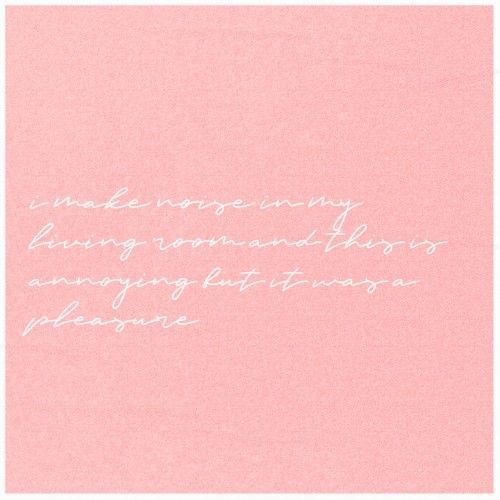 i make noise in my
living room and this is
annoying but it was a
pleasure